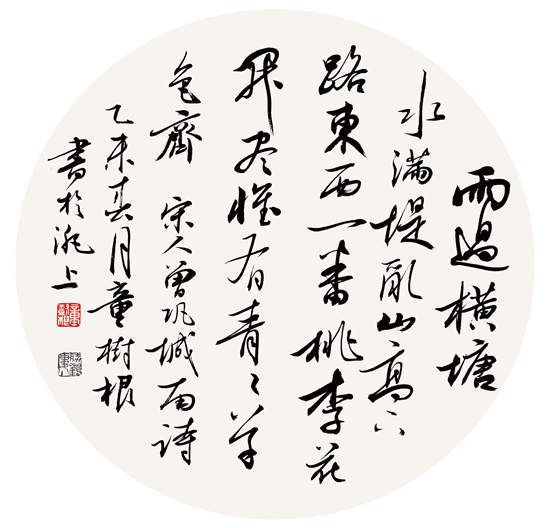 雨過橫塘
水滿堤亂山高下
路東西一番桃李花
開盡惟有青々草
色齊 宋人曾巩城南詩
乙未春月童樹根
書於淝上